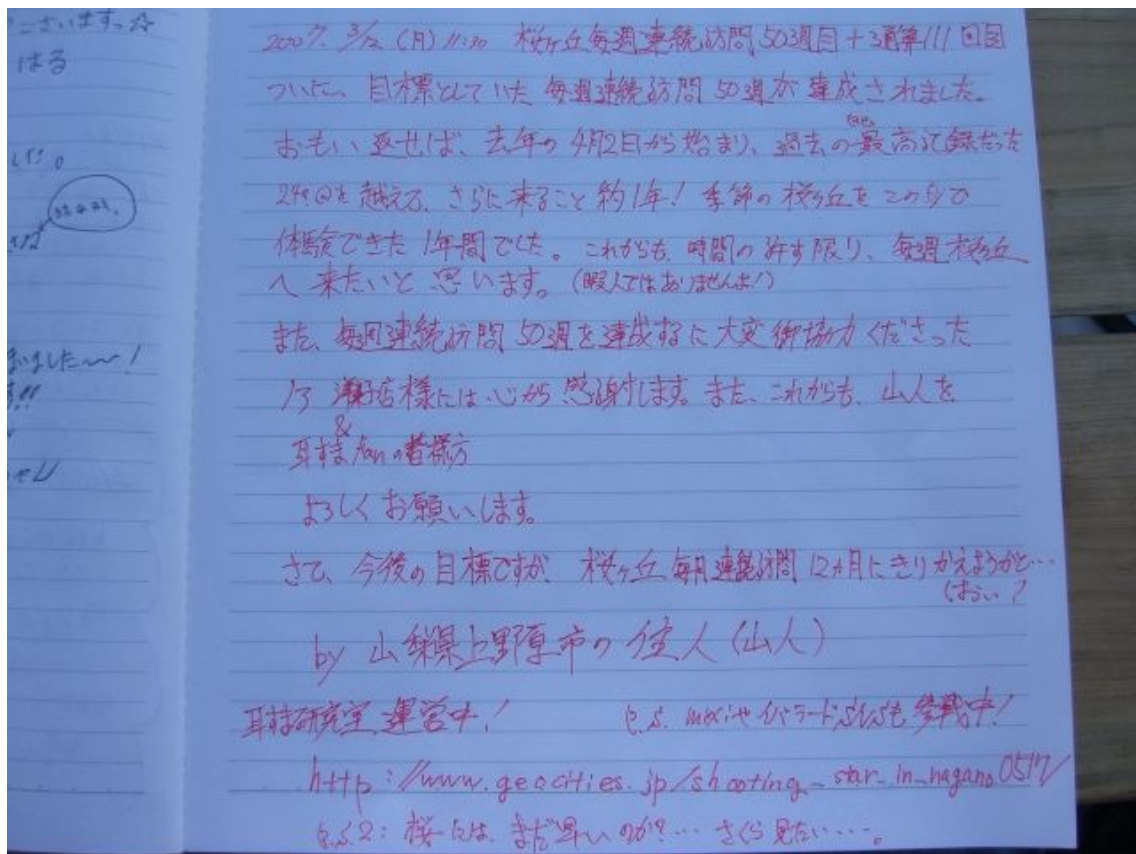 ございます。☆
はる
した。
2007. 3/12 (月) 11:30 桜ヶ丘毎週連続訪問50週目+3通算111回目
ついに、目標としていた毎週連続訪問50週が達成されました。
おもい返せば、去年の4月2日から始まり、過去の最高記録だった
24回を越えて、さらに来ること約1年!季節の桜ヶ丘をこの身で
体験できた1年間でした。これからも、時間の許す限り、毎週桜ヶ丘
へ来たいと思います。(暇人ではありませんよ!)
また、毎週連続訪問50週を達成するに大変御協力くださった
店様には心から感謝します。また、これからも、山人を
&
耳すま fanの皆様方
よろしくお願いします。
さて、今後の目標ですが、桜ヶ丘毎月連続訪問12ヵ月にきりかえようかと…
by 山梨県上野原市の住人(山人)
耳すま研究室、運営中!
P.S. mixiやイバラードSNSも参戦中!
http://www.geocities.jp/shooting_star_in_nagano0517/
P.S.2: 桜には、まだ早いのか?… さくら見たい…。
ました〜!
す!!